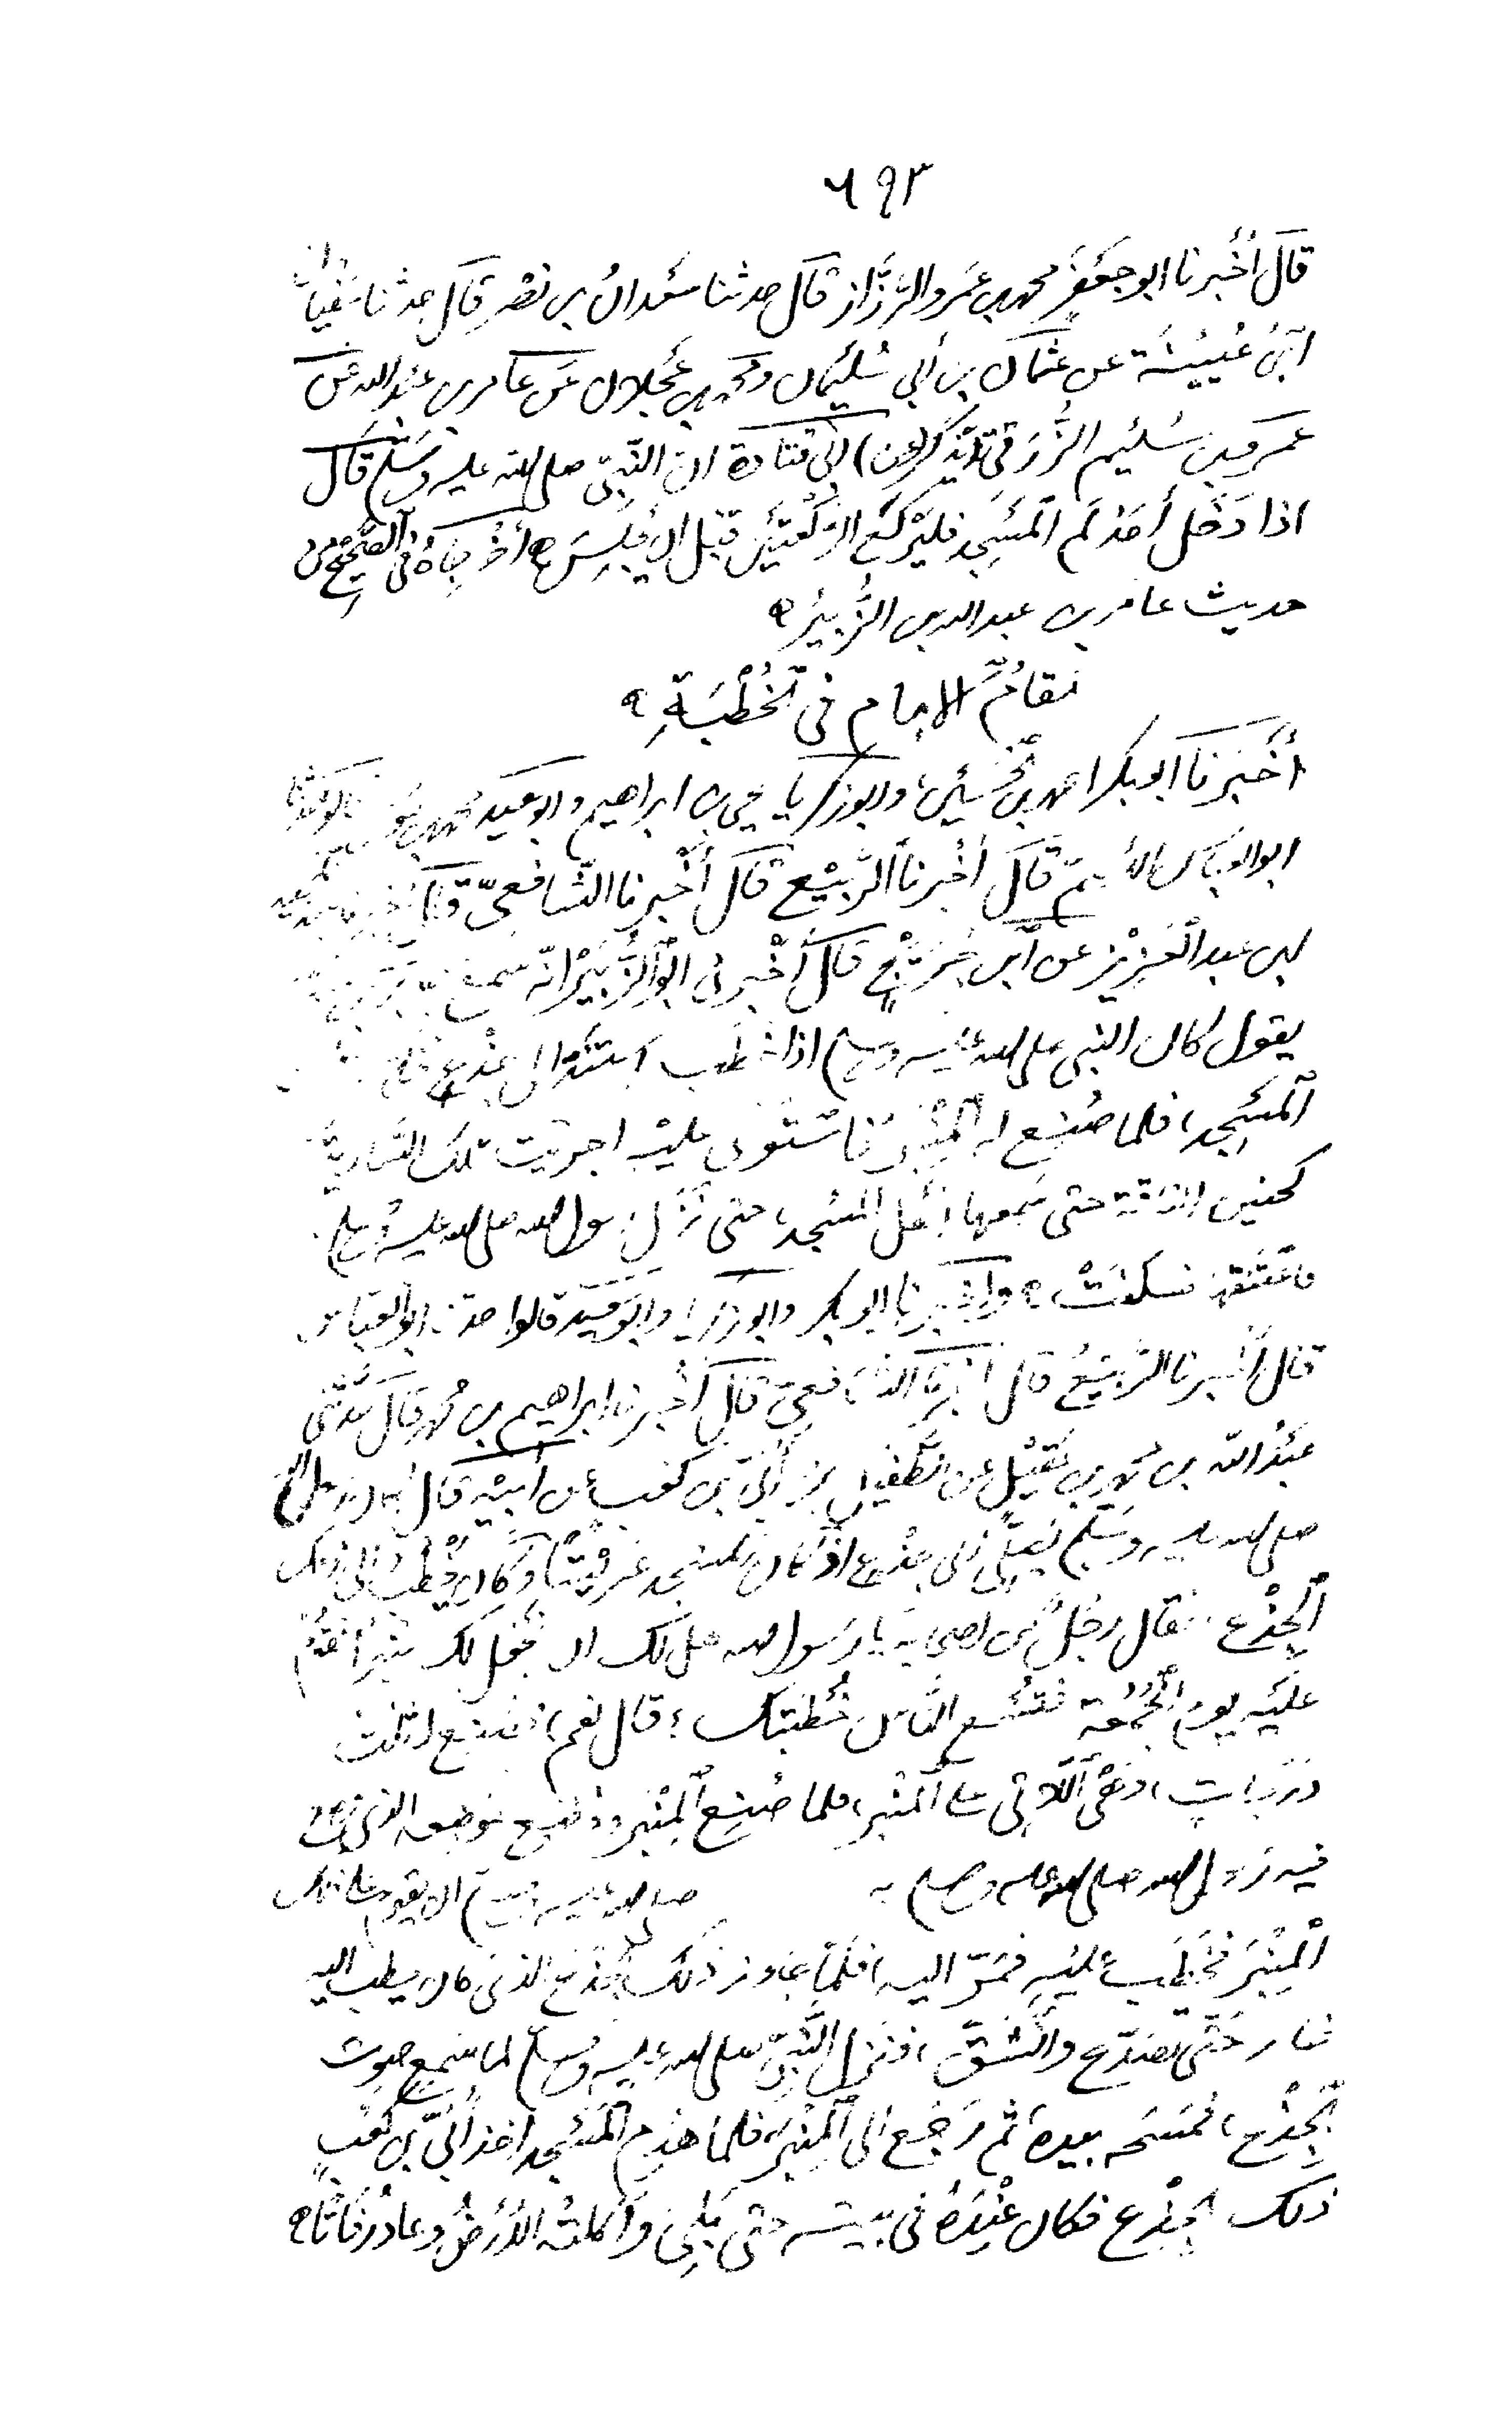 ٦٩٣
قال أخبرنا ابو جعفر محمد بن عمرو الرزاز قال حدثنا سعدان بن نصر قال حدثنا سفيان
ابن عيينة عن عثمان بن أبي سليمان ومحمد بن عجلان عن عامر بن عبد الله عن
عمرو بن سليم الزرقي ابي قتادة ان النبي صلى الله عليه وسلم قال
اذا دخل أحدكم المسجد فليركع الركعتين قبل ان يجلس ه أخرجاه في الصحيح من
حديث عامر بن عبد الله بن الزبير ه
مقام الامام في الخطبة ه
أخبرنا ابو بكر احمد بن الحسين، وابو زكريا يحيى بن ابراهيم وابو سعيد محمد بن
ابو العباس الأصم قال أخبرنا الربيع قال أخبرنا الشافعي قال
بن عبد العزيز عن ابن جريج قال أخبرني ابو الزبير انه سمع
يقول كان النبي صلى الله عليه وسلم اذا خطب استند الى جذع
المسجد، فلما صنع له المنبر فاستوى عليه اضطربت تلك السارية
كحنين الناقة حتى سمعها أهل المسجد، حتى نزل رسول الله صلى الله عليه وسلم
فاعتنقها فسكنت ه وأخبرنا ابو بكر وابو زكريا وابو سعيد قالوا حدثنا ابو العباس
قال أخبرنا الربيع قال أخبرنا الشافعي قال أخبرنا ابراهيم بن محمد قال حدثني
عبد الله بن محمد بن عقيل عن الطفيل بن أبي بن كعب عن ابيه قال كان رسول الله
صلى الله عليه وسلم يصلي الى جذع اذ كان المسجد عريشا وكان يخطب الى ذلك
الجذع. فقال رجل من اصحابه يا رسول الله هل لك ان نجعل لك منبرا تقوم
عليه يوم الجمعة فتسمع الناس خطبتك؛ قال نعم، فصنع له ثلاث
درجات، فهي اللاتي على المنبر، فلما صنع المنبر ووضع موضعه الذي
فيه رسول الله صلى الله عليه وسلم صلى الله عليه وسلم ان يقوم على ذلك
المنبر فخطب عليه فمر اليه، فلما جاوز ذلك الجذع الذي كان يخطب اليه
خار حتى تصدع وانشق، فنزل النبي صلى الله عليه وسلم لما سمع صوت
الجذع، فمسحه بيده ثم رجع الى المنبر، فلما هدم المسجد اخذ أبي بن كعب
ذلك الجذع فكان عنده في بيته حتى بلي وأكلته الأرضة وعاد رفاتا ه